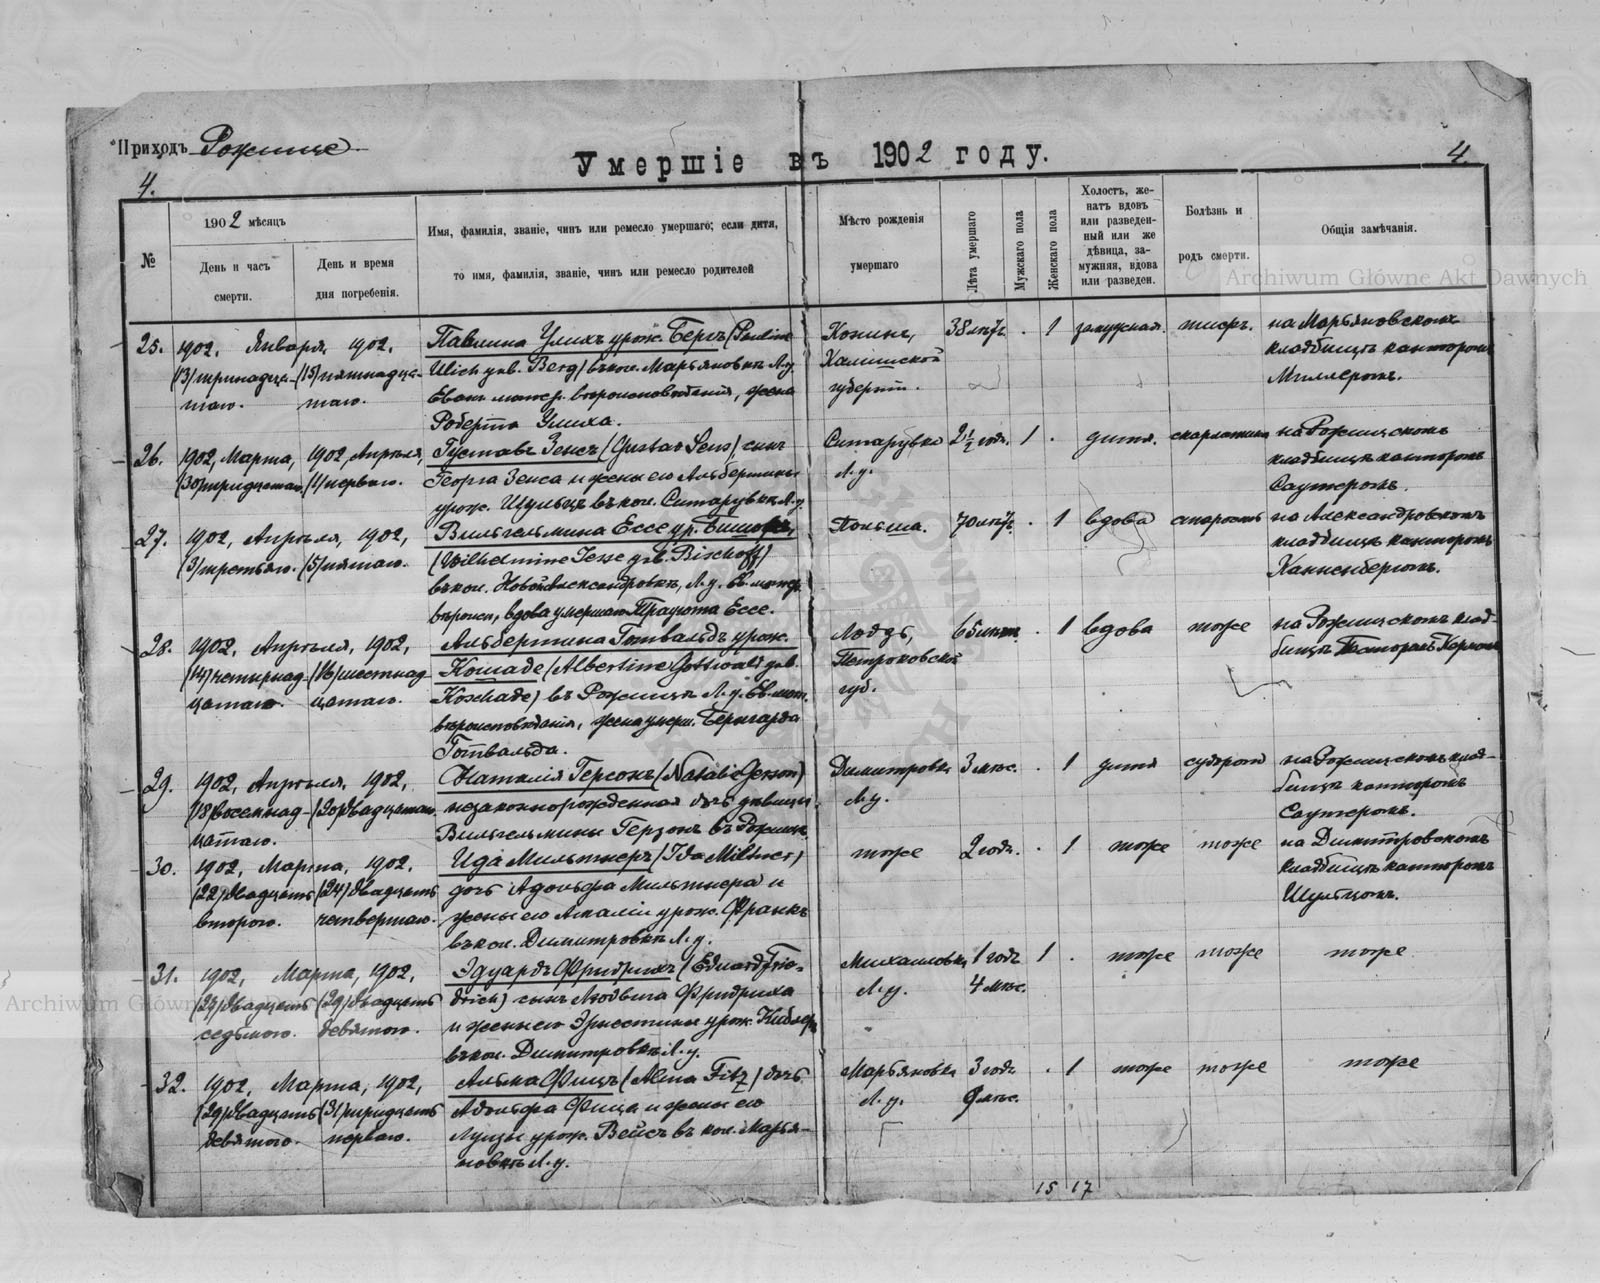 Приходъ Рожище
Умершіе въ 1902 году.
4.
4.
№
1902 мѣсяцъ
День и часъ
смерти.
День и время
дня погребенія.
Имя, фамилія, званіе, чинъ или ремесло умершаго; если дитя,
то имя, фамилія, званіе, чинъ или ремесло родителей
Мѣсто рожденія
умершаго
Лѣта умершаго
Мужскаго пола
Женскаго пола
Холостъ, же-
натъ вдовъ
или разведен-
ный или же
дѣвица, за-
мужняя, вдова
или разведен.
Болѣзнь и
родъ смерти.
Общія замѣчанія.
25.
1902, Января, 1902,
(13) тринадца- (15) пятнадца-
таго. таго.
Павлина Улихъ урож. Бергъ (Pauline
Ulich geb. Berg) въ кол. Марьяновкѣ Л. у.
Еван. лютер. вѣроисповѣданія, жена
Роберта Улиха.
Конинъ,
Калишской
губерніи.
38 лѣтъ
1
замужняя.
тифъ.
на Марьяновскомъ
кладбищѣ канторомъ
Миллеромъ.
26.
1902, Марта, 1902, Апрѣля,
(30) тридцатаго (1) перваго.
Густавъ Зенсъ (Gustav Sens) сынъ
Георга Зенса и жены его Альбертины
урож. Шульцъ въ кол. Ситарувкѣ Л. у.
Ситарувка
Л. у.
2 1/2 года.
1
дитя.
скарлатина
на Рожищскомъ
кладбищѣ канторомъ
Саутеромъ.
27.
1902, Апрѣля, 1902,
(3) третьяго. (5) пятаго.
Вильгельмина Ессе ур. Бишофъ,
(Wilhelmine Jesse geb. Bischoff)
въ кол. Новой Александровкѣ, Л. у. Ев. лютер.
вѣроисп, вдова умершаго Трауготта Ессе.
Польша.
70 лѣтъ.
1
вдова
старость
на Александровскомъ
кладбищѣ канторомъ
Канненбергомъ.
28.
1902, Апрѣля, 1902,
(14) четырнад- (16) шестнад-
цатаго. цатаго.
Альбертина Готвальдъ урож.
Кошаде (Albertine Gottwald geb.
Koschade) въ Рожищѣ Л. у. Ев. лют.
вѣроисповѣданія, жена умерш. Бернгарда
Готвальда.
Лодзь,
Петроковской
губ.
65 лѣтъ.
1
вдова
тоже
на Рожищскомъ клад-
бищѣ Пасторомъ Керномъ
29.
1902, Апрѣля, 1902,
(18) восемнад- (20) двадцатаго
цатаго.
Наталія Герсонъ (Natalie Gerson)
незаконнорожденная дочь дѣвицы
Вильгельмины Герзонъ въ Рожищѣ.
Димитровка
Л. у.
3 мѣс.
1
дитя
судороги
на Рожищскомъ клад-
бищѣ канторомъ
Саутеромъ.
30.
1902, Марта, 1902.
(22) двадцать (24) двадцать
второго. четвертаго.
Ида Мильтнеръ (Ida Miltner)
дочь Адольфа Мильтнера и
жены его Амаліи урож. Франкъ
въ кол. Димитровкѣ Л. у.
тоже
2 года.
1
тоже
тоже
на Димитровскомъ
кладбищѣ канторомъ
Шультцомъ.
31.
1902, Марта, 1902,
(27) двадцать (29) двадцать
седьмого. девятого.
Эдуардъ Фридрихъ (Eduard Frie-
drich) сынъ Людвига Фридриха
и жены его Эрнестины урож.
въ кол. Димитровкѣ Л. у.
Михаиловка
Л. у.
1 годъ
4 мѣс.
1
тоже
тоже
тоже
32.
1902, Марта, 1902,
(29) двадцать (31) тридцать
девятого. перваго.
Альма Фицъ (Alma Fitz) дочь
Адольфа Фица и жены его
Луизы урож. Вейсъ въ кол. Марья-
новкѣ Л. у.
Марьяновка
Л. у.
3 года
9 мѣс.
1
тоже
тоже
тоже
15 17
Archiwum Główne Akt Dawnych
Archiwum Główne